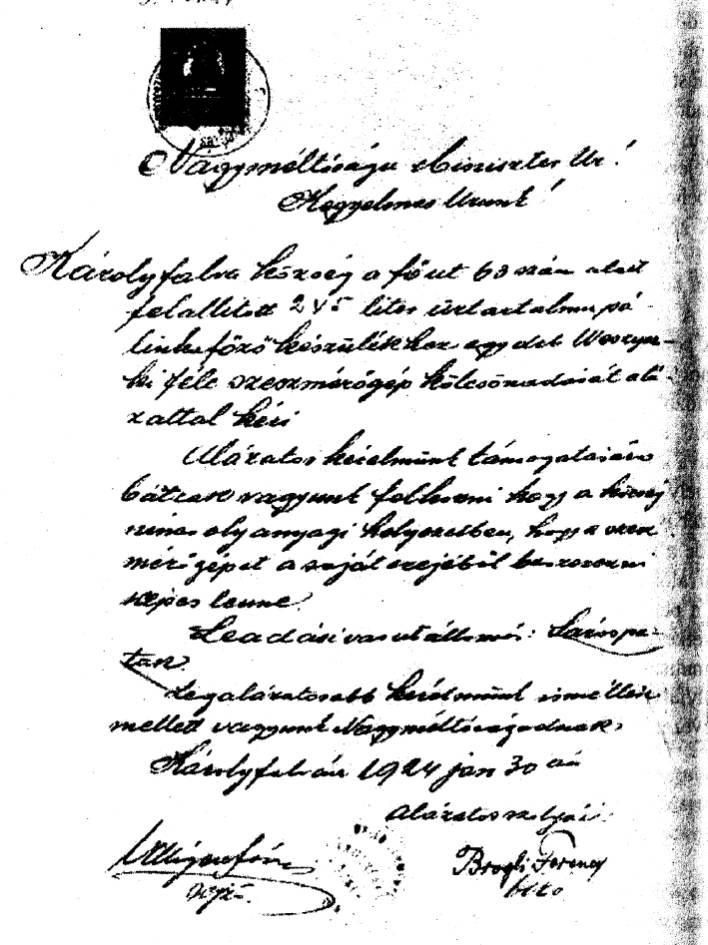 Nagyméltóságu Miniszter Ur!
Kegyelmes Urunk!
Károlyfalva község a főut 63 szám alatt
felállitott 245 liter ürtartalmu pá-
linkafőző készülékhez egy deb
ki féle szeszmérőgép kölcsönadását alá-
zattal kéri
Alázatos kérelmünk támogatására
bátrak vagyunk felhozni hogy a község
nincs oly anyagi helyzetben, hogy a szesz
mérőgépet a saját erejéből beszerezni
képes lenne.
Leadási vasutállomás: Sárospa-
tak.
Legalázatosabb kérelmünk ismétlése
mellett vagyunk Nagyméltóságodnak
Károlyfalván 1924 jan 30 án
alázatos szolgái:
Brogli Ferenc
biró